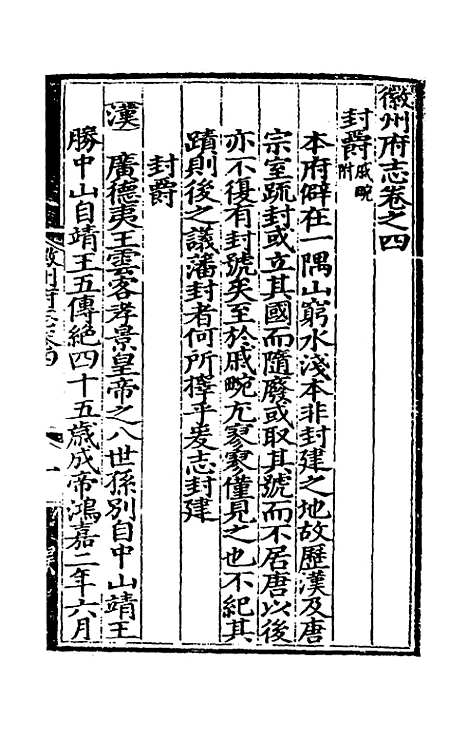 徽州府志卷之四
封爵戚畹附
本府僻在一隅山窮水淺本非封建之地故歷漢及唐
宗室疏封或立其國而隨廢或取其號而不居唐以後
亦不復有封號矣至於戚畹尤寥寥僅見之也不紀其
蹟則後之議藩封者何所擇乎爰志封建
封爵
漢 廣德夷王雲客孝景皇帝之八世孫別自中山靖王
勝中山自靖王五傳絕四十五歲成帝鴻嘉二年六月